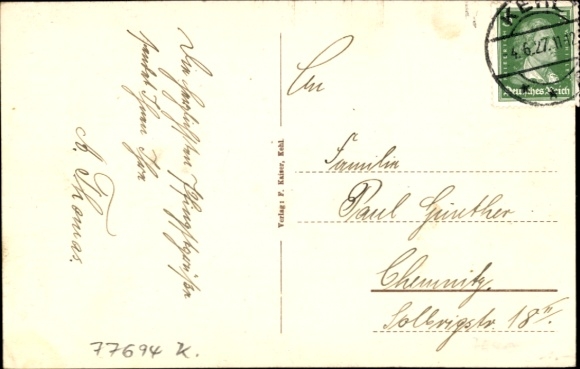 Die herzlichsten Pfingstgrüße
sendet Ihnen Ihre
A. Thomas.
Verlag: F. Kaiser, Kehl.
KEHL
4.6.27. 11-12
Deutsches Reich
An
Familie
Paul Günther
Chemnitz.
Solbrigstr. 18 II.
77694 K.